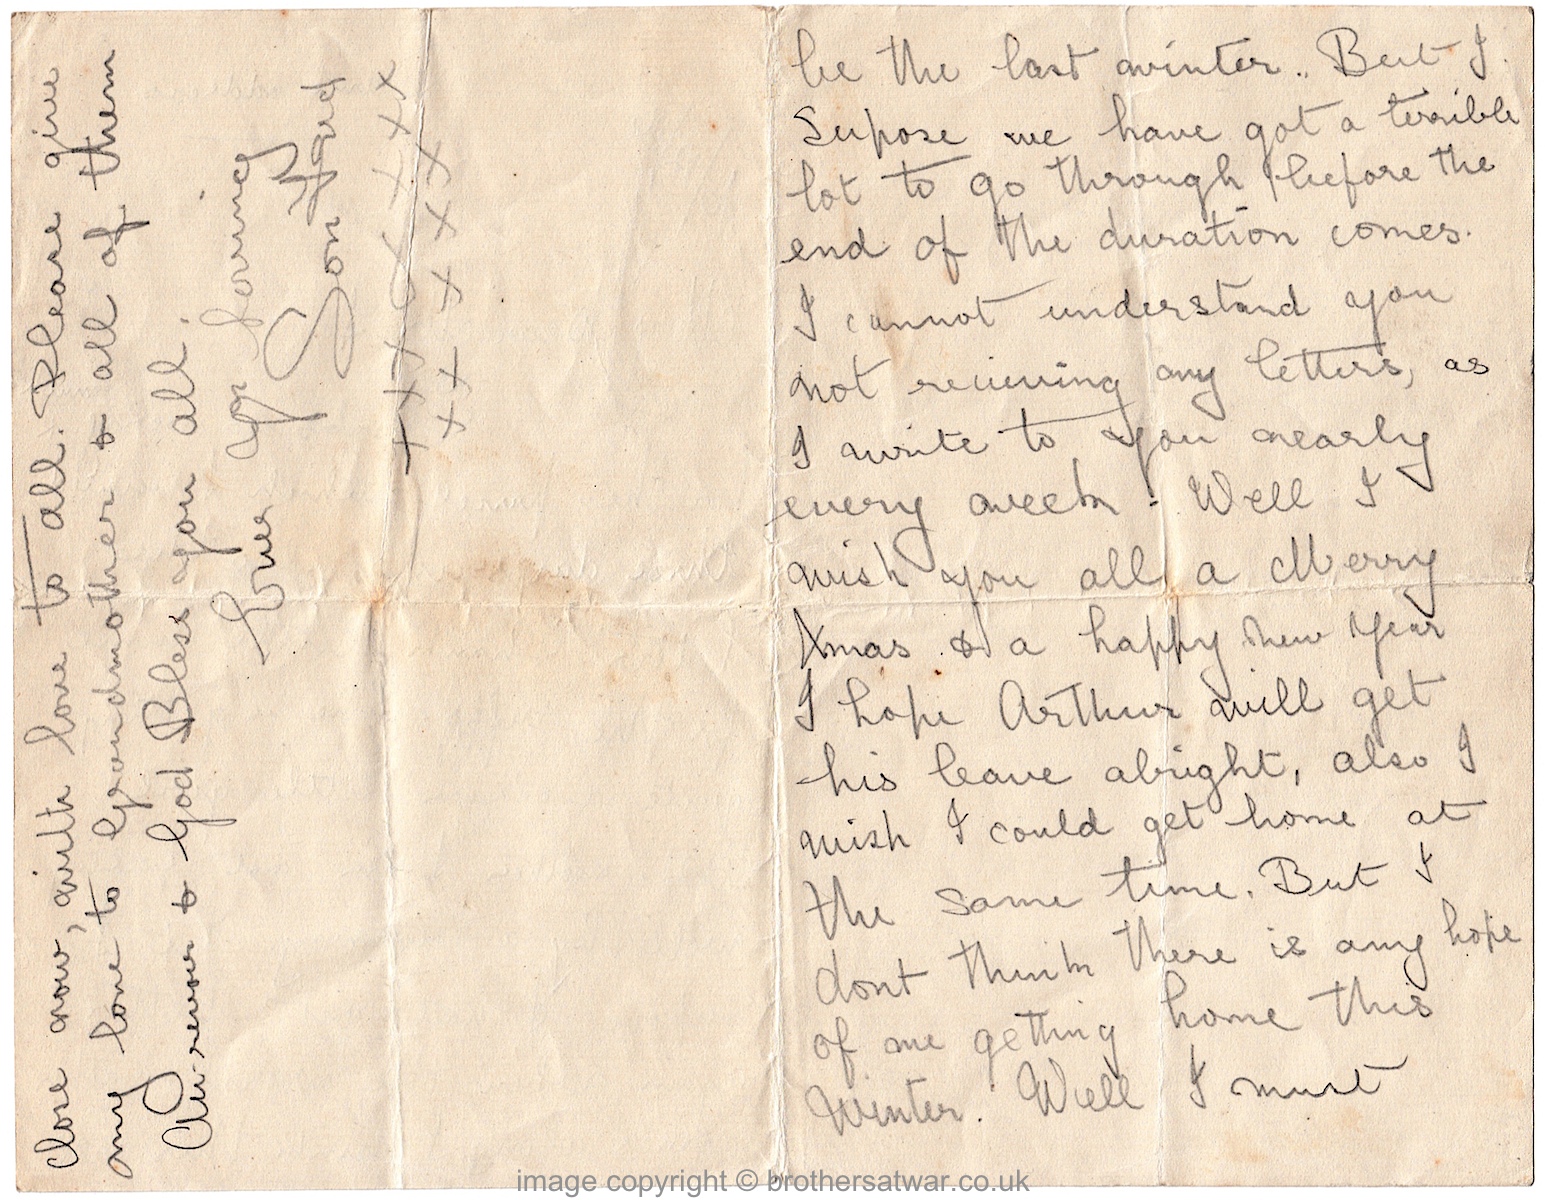 be the last winter.. But I
Supose we have got a terrible
lot to go through before the
end of the duration comes.
I cannot understand you
not recieving any letters, as
I write to you nearly
every week. Well I
wish you all a Merry
Xmas & a happy New Year
I hope Arthur will get
his leave alright, also I
wish I could get home at
the same time. But I
dont think there is any hope
of me getting home this
winter. Well I must
close now, with love to all. Please give
my love to Grandmother & all of them
Au-revoir & God Bless you all.
Ever yor loving
Son Fred
xxxxxxxx
xxxxxxx
image copyright © brothersatwar.co.uk